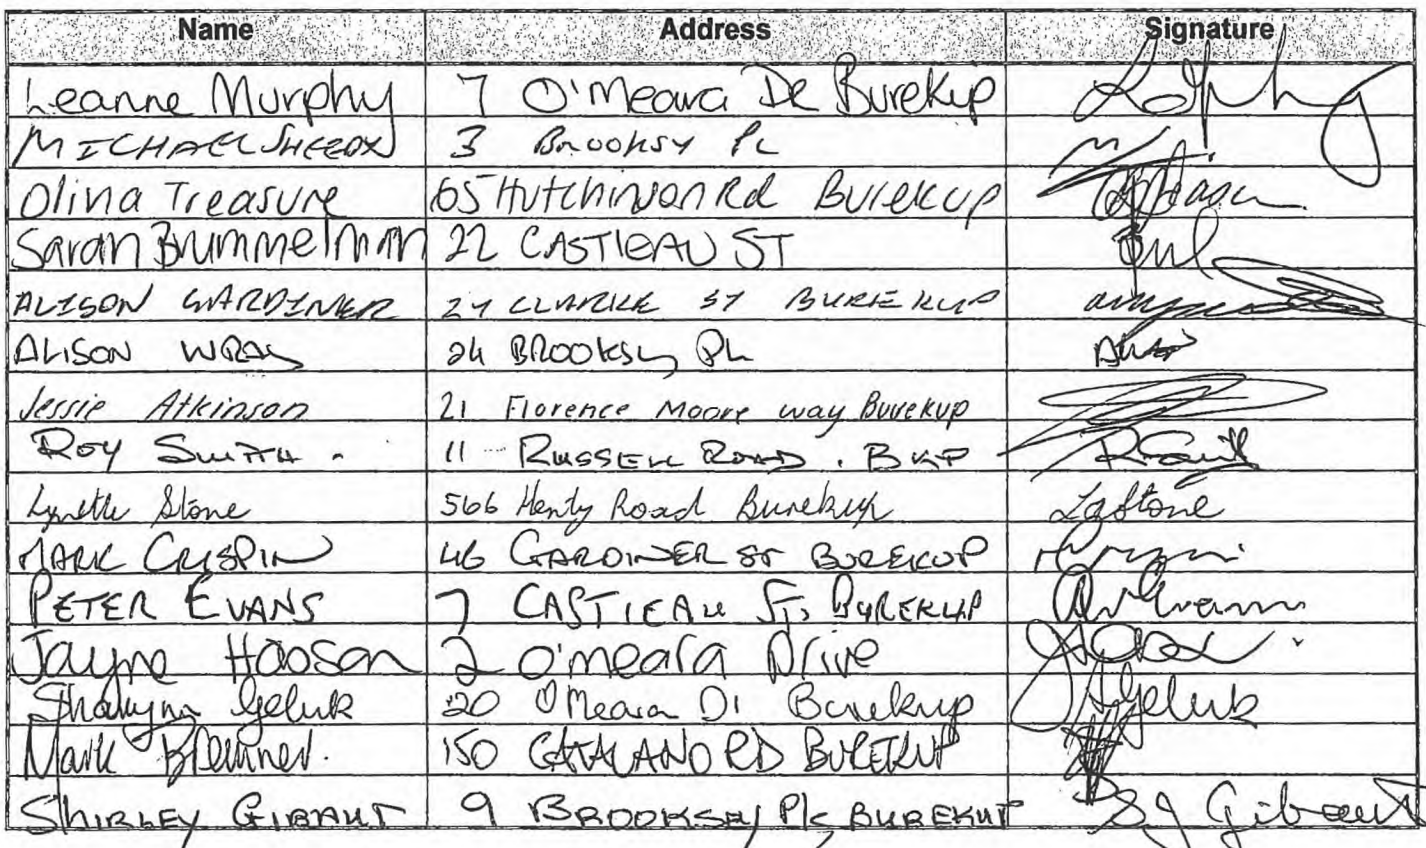 Name Address Signature
Leanne Murphy 7 O'Meara Dr Burekup
MICHAEL 3 Brooksy PL
Olina Treasure 65 Hutchinson Rd Burekup
Sarah Brummelman 22 CASTIEAU ST
ALISON GARDINER 24 CLARKE ST BUREKUP
ALISON WRAY 24 BROOKSY PL
Jessie Atkinson 21 Florence Moore way Burekup
ROY SMITH. 11 RUSSELL ROAD. BKP R Smith
Lynette Stone 566 Henty Road Burekup LgStone
MARK CRISPIN 46 GARDINER ST BUREKUP
PETER EVANS 7 CASTIEAU ST, BUREKUP
Jayne Hooson 2 O'meara Drive
Geluk 20 O'Meara Dr Burekup Geluk
Mark Bremner. 150 CATALANO RD BUREKUP
SHIRLEY GIBAUT 9 BROOKSEY Plc BUREKUP S J Gibaut